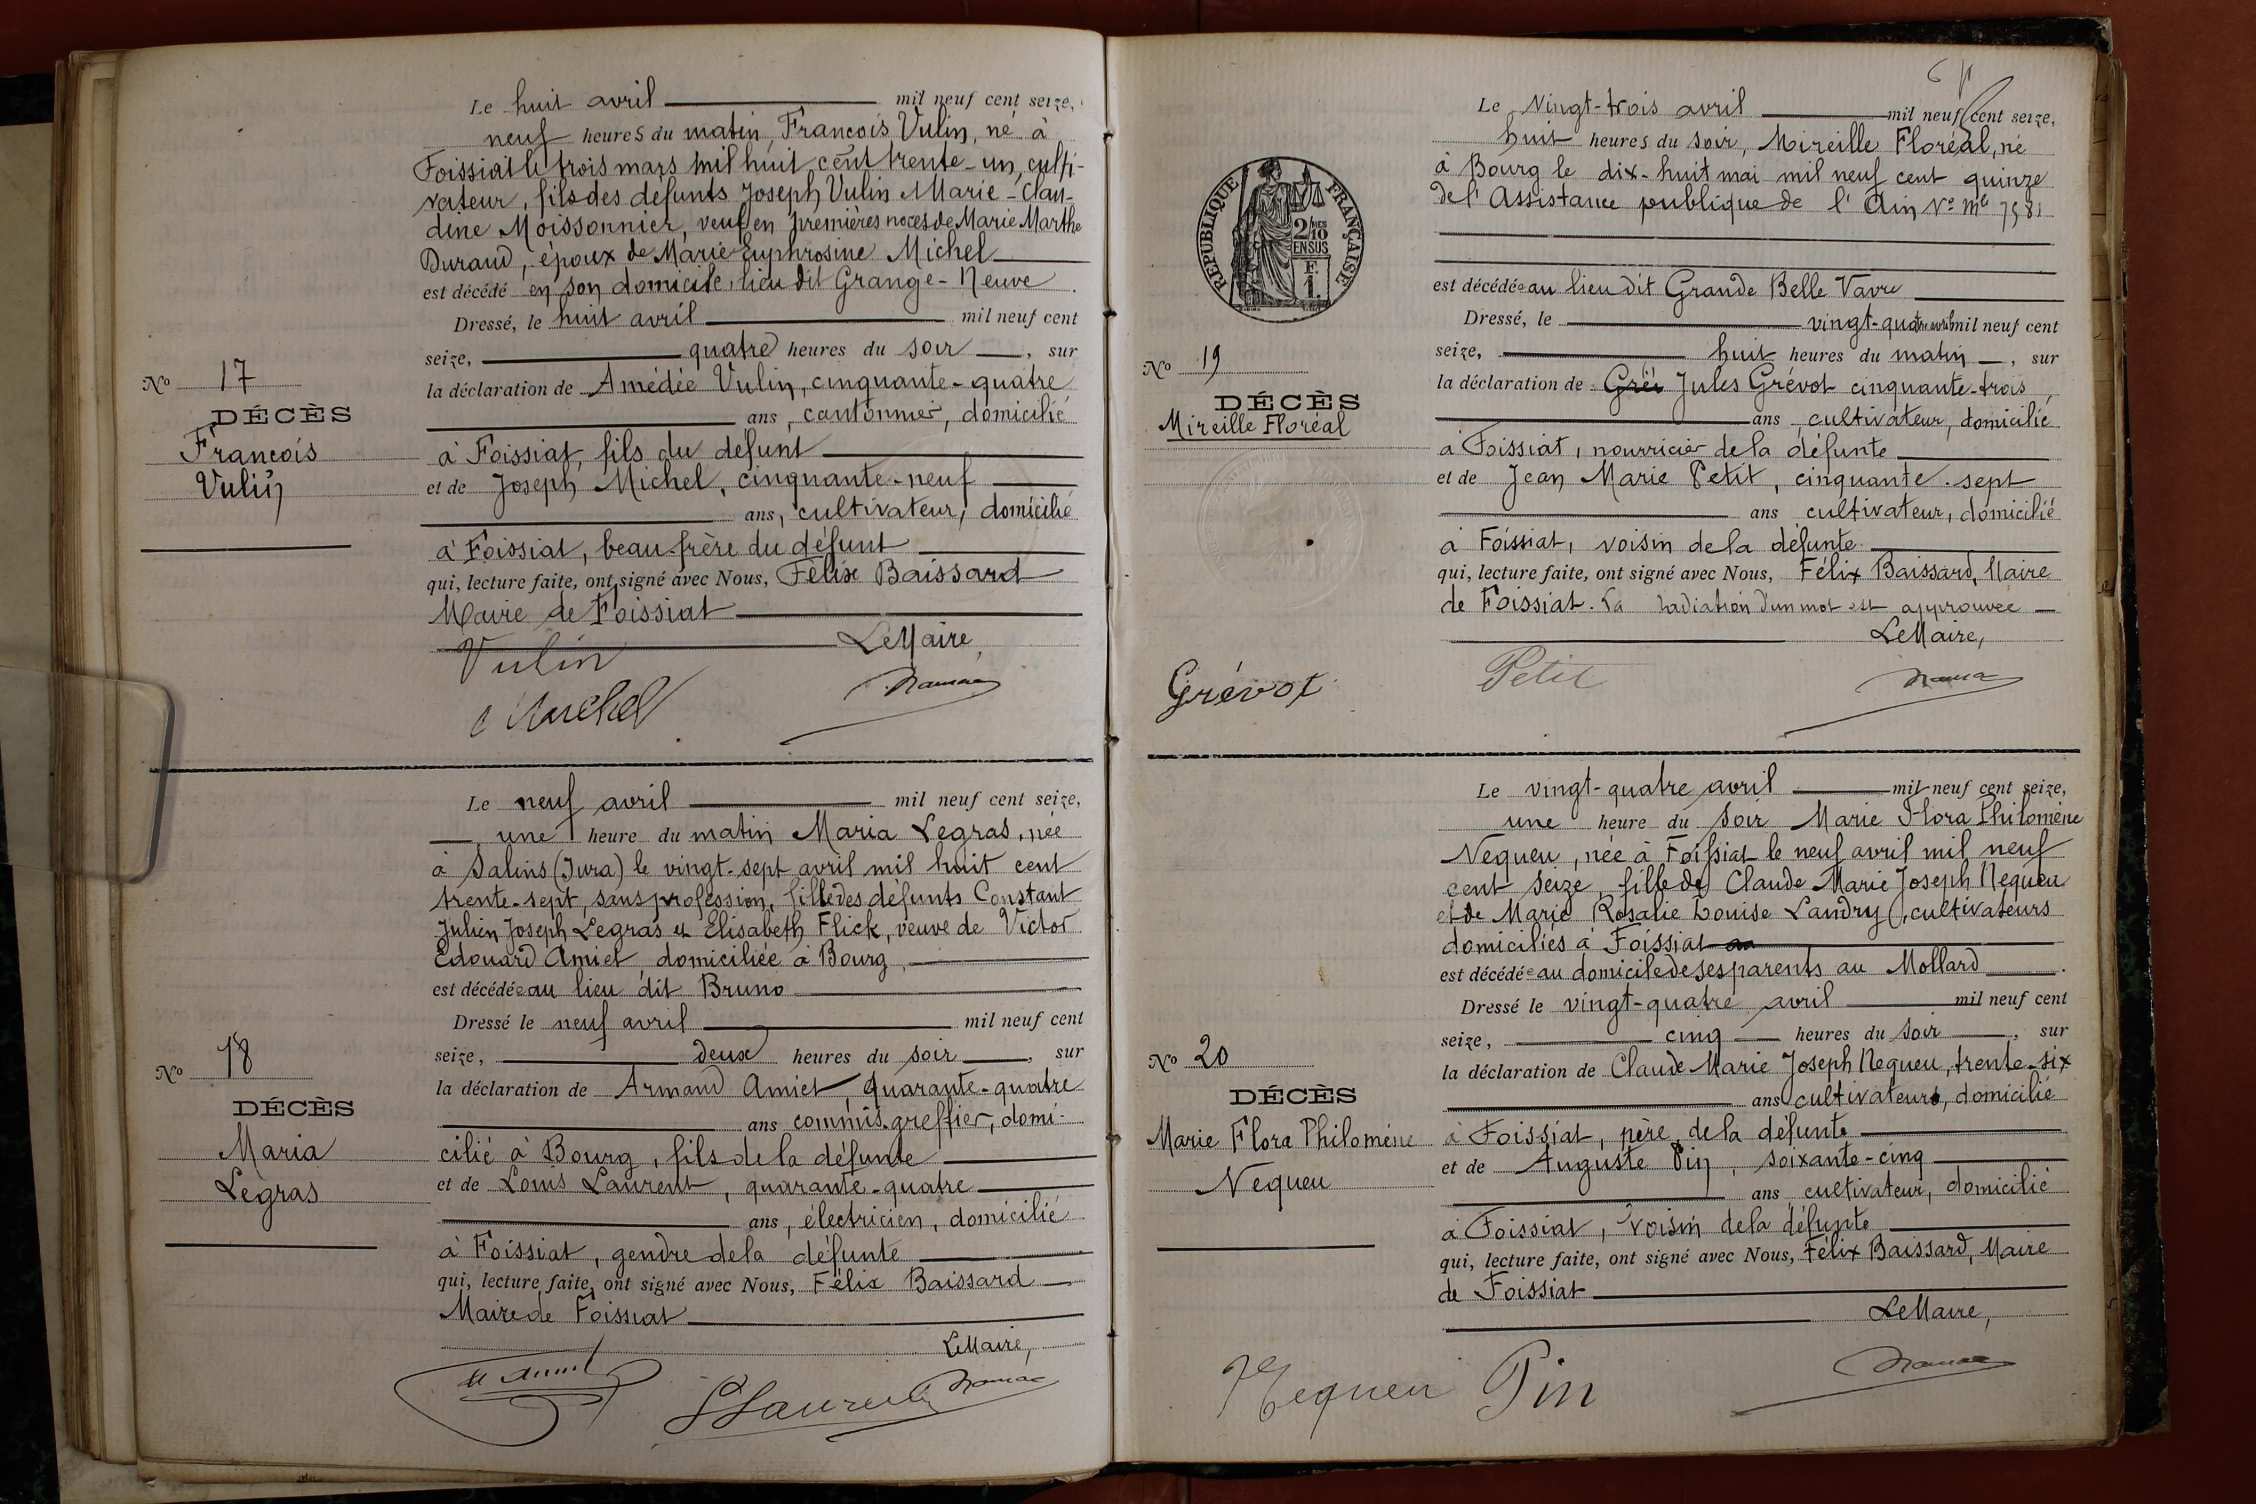 Le huit avril mil neuf cent seize,
neuf heures du matin, François Vulin, né à
Foissiat le trois mars mil huit cent trente-un, culti-
vateur, fils des défunts Joseph Vulin Marie-Clau-
dine Moissonnier, veuf en premières noces de Marie Marthe
Durand, époux de Marie Euphrosine Michel
est décédé en son domicile, lieu dit Grange-Neuve.
Dressé, le huit avril mil neuf cent
seize, quatre heures du soir, sur
la déclaration de Amédée Vulin, cinquante-quatre
ans, cantonnier, domicilié
à Foissiat, fils du défunt
et de Joseph Michel, cinquante-neuf
ans, cultivateur, domicilié
à Foissiat, beau-frère du défunt
qui, lecture faite, ont signé avec Nous, Félix Baissard
Maire de Foissiat
Le Maire,
Vulin
Michel
No 17
DÉCÈS
François
Vulin
Le neuf avril mil neuf cent seize,
une heure du matin Maria Legras, née
à Salins (Jura) le vingt-sept avril mil huit cent
trente-sept, sans profession, fille des défunts Constant
Julien Joseph Legras et Elisabeth Flick, veuve de Victor
Edouard Amiet, domiciliée à Bourg,
est décédée au lieu dit Bruno
Dressé le neuf avril mil neuf cent
seize, deux heures du soir, sur
la déclaration de Armand Amiet, quarante-quatre
ans commis-greffier, domi-
cilié à Bourg, fils de la défunte
et de Louis Laurent, quarante-quatre
ans, électricien, domicilié
à Foissiat, gendre de la défunte
qui, lecture faite, ont signé avec Nous, Félix Baissard
Maire de Foissiat
Le Maire,
L Laurent
No 18
DÉCÈS
Maria
Legras
Le vingt-trois avril mil neuf cent seize,
huit heures du soir, Mireille Floréal, né
à Bourg le dix-huit mai mil neuf cent quinze
de l'Assistance publique de l'Ain No Mle 7581
est décédée au lieu dit Grande Belle Vavre
Dressé, le vingt-quatre avril mil neuf cent
seize, huit heures du matin, sur
la déclaration de Jules Grévot cinquante-trois
ans, cultivateur, domicilié
à Foissiat, nourricier de la défunte
et de Jean Marie Petit, cinquante-sept
ans cultivateur, domicilié
à Foissiat, voisin de la défunte
qui, lecture faite, ont signé avec Nous, Félix Baissard, Maire
de Foissiat. La radiation d'un mot est approuvée
Le Maire,
Grévot
Petit
RÉPUBLIQUE FRANÇAISE
2/10
EN SUS
No 19
DÉCÈS
Mireille Floréal
Le vingt-quatre avril mil neuf cent seize,
une heure du soir Marie Flora Philomène
Nequeu, née à Foissiat le neuf avril mil neuf
cent seize, fille de Claude Marie Joseph Nequeu
et de Marie Rosalie Louise Landry, cultivateurs
domiciliés à Foissiat
est décédée au domicile de ses parents au Mollard.
Dressé le vingt-quatre avril mil neuf cent
seize, cinq heures du soir, sur
la déclaration de Claude Marie Joseph Nequeu, trente-six
ans cultivateur, domicilié
à Foissiat, père de la défunte
et de Auguste Pin, soixante-cinq
ans cultivateur, domicilié
à Foissiat, voisin de la défunte
qui, lecture faite, ont signé avec Nous, Félix Baissard, Maire
de Foissiat
Le Maire,
Nequeu
Pin
No 20
DÉCÈS
Marie Flora Philomène
Nequeu